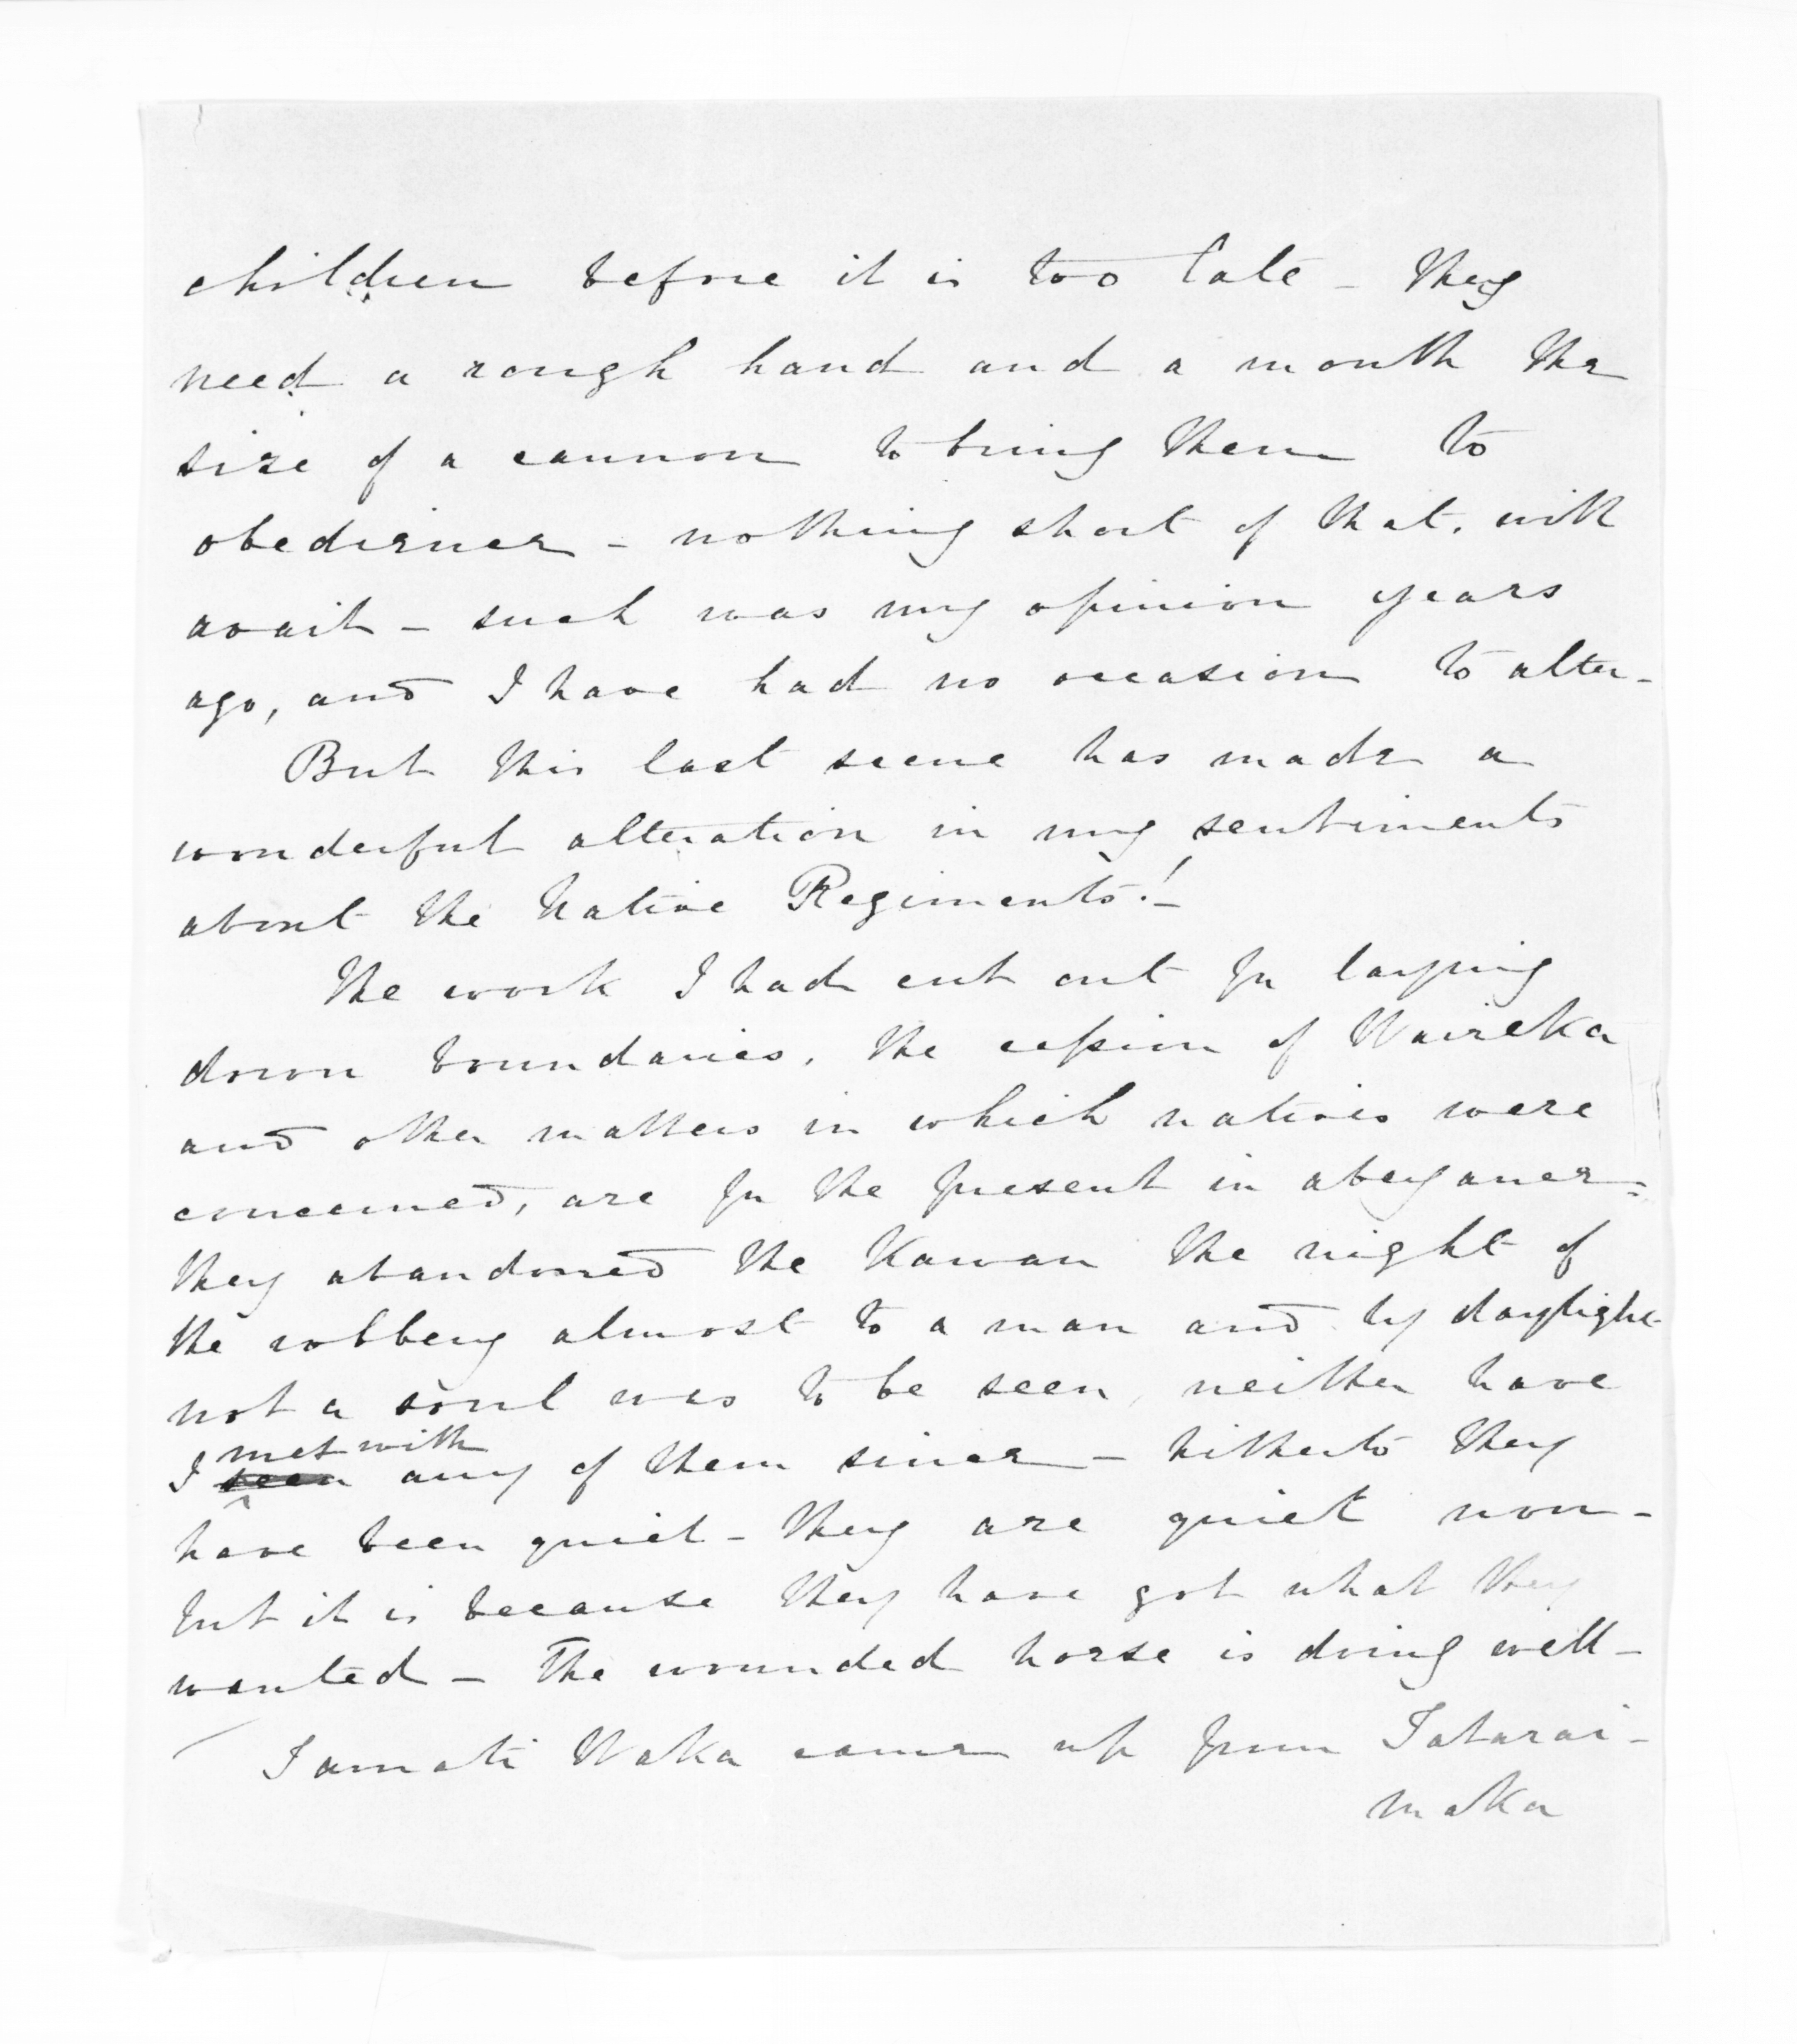 children before it is too late - they
need a rough hand and a mouth the
size of a cannon to bring them to
obedience - nothing short of that, will
avail - such was my opinion years
ago, and I have had no occasion to alter -
But this last scene has made a
wonderful alteration in my sentiments
about the Native Regiments! -
The work I had cut out for laying
down boundaries, the cession of Waireka
and other matters in which natives were
concerned, are for the present in abeyance -
they abandoned the Kawau the night of
the robbery almost to a man and by daylight
not a soul was to be seen, neither have
I seen met with any of them since - hitherto they
have been quiet - they are quiet now -
but it is because they have got what they
wanted - The wounded horse is doing well -
Tamati Waka came up from Tatarai-
maka